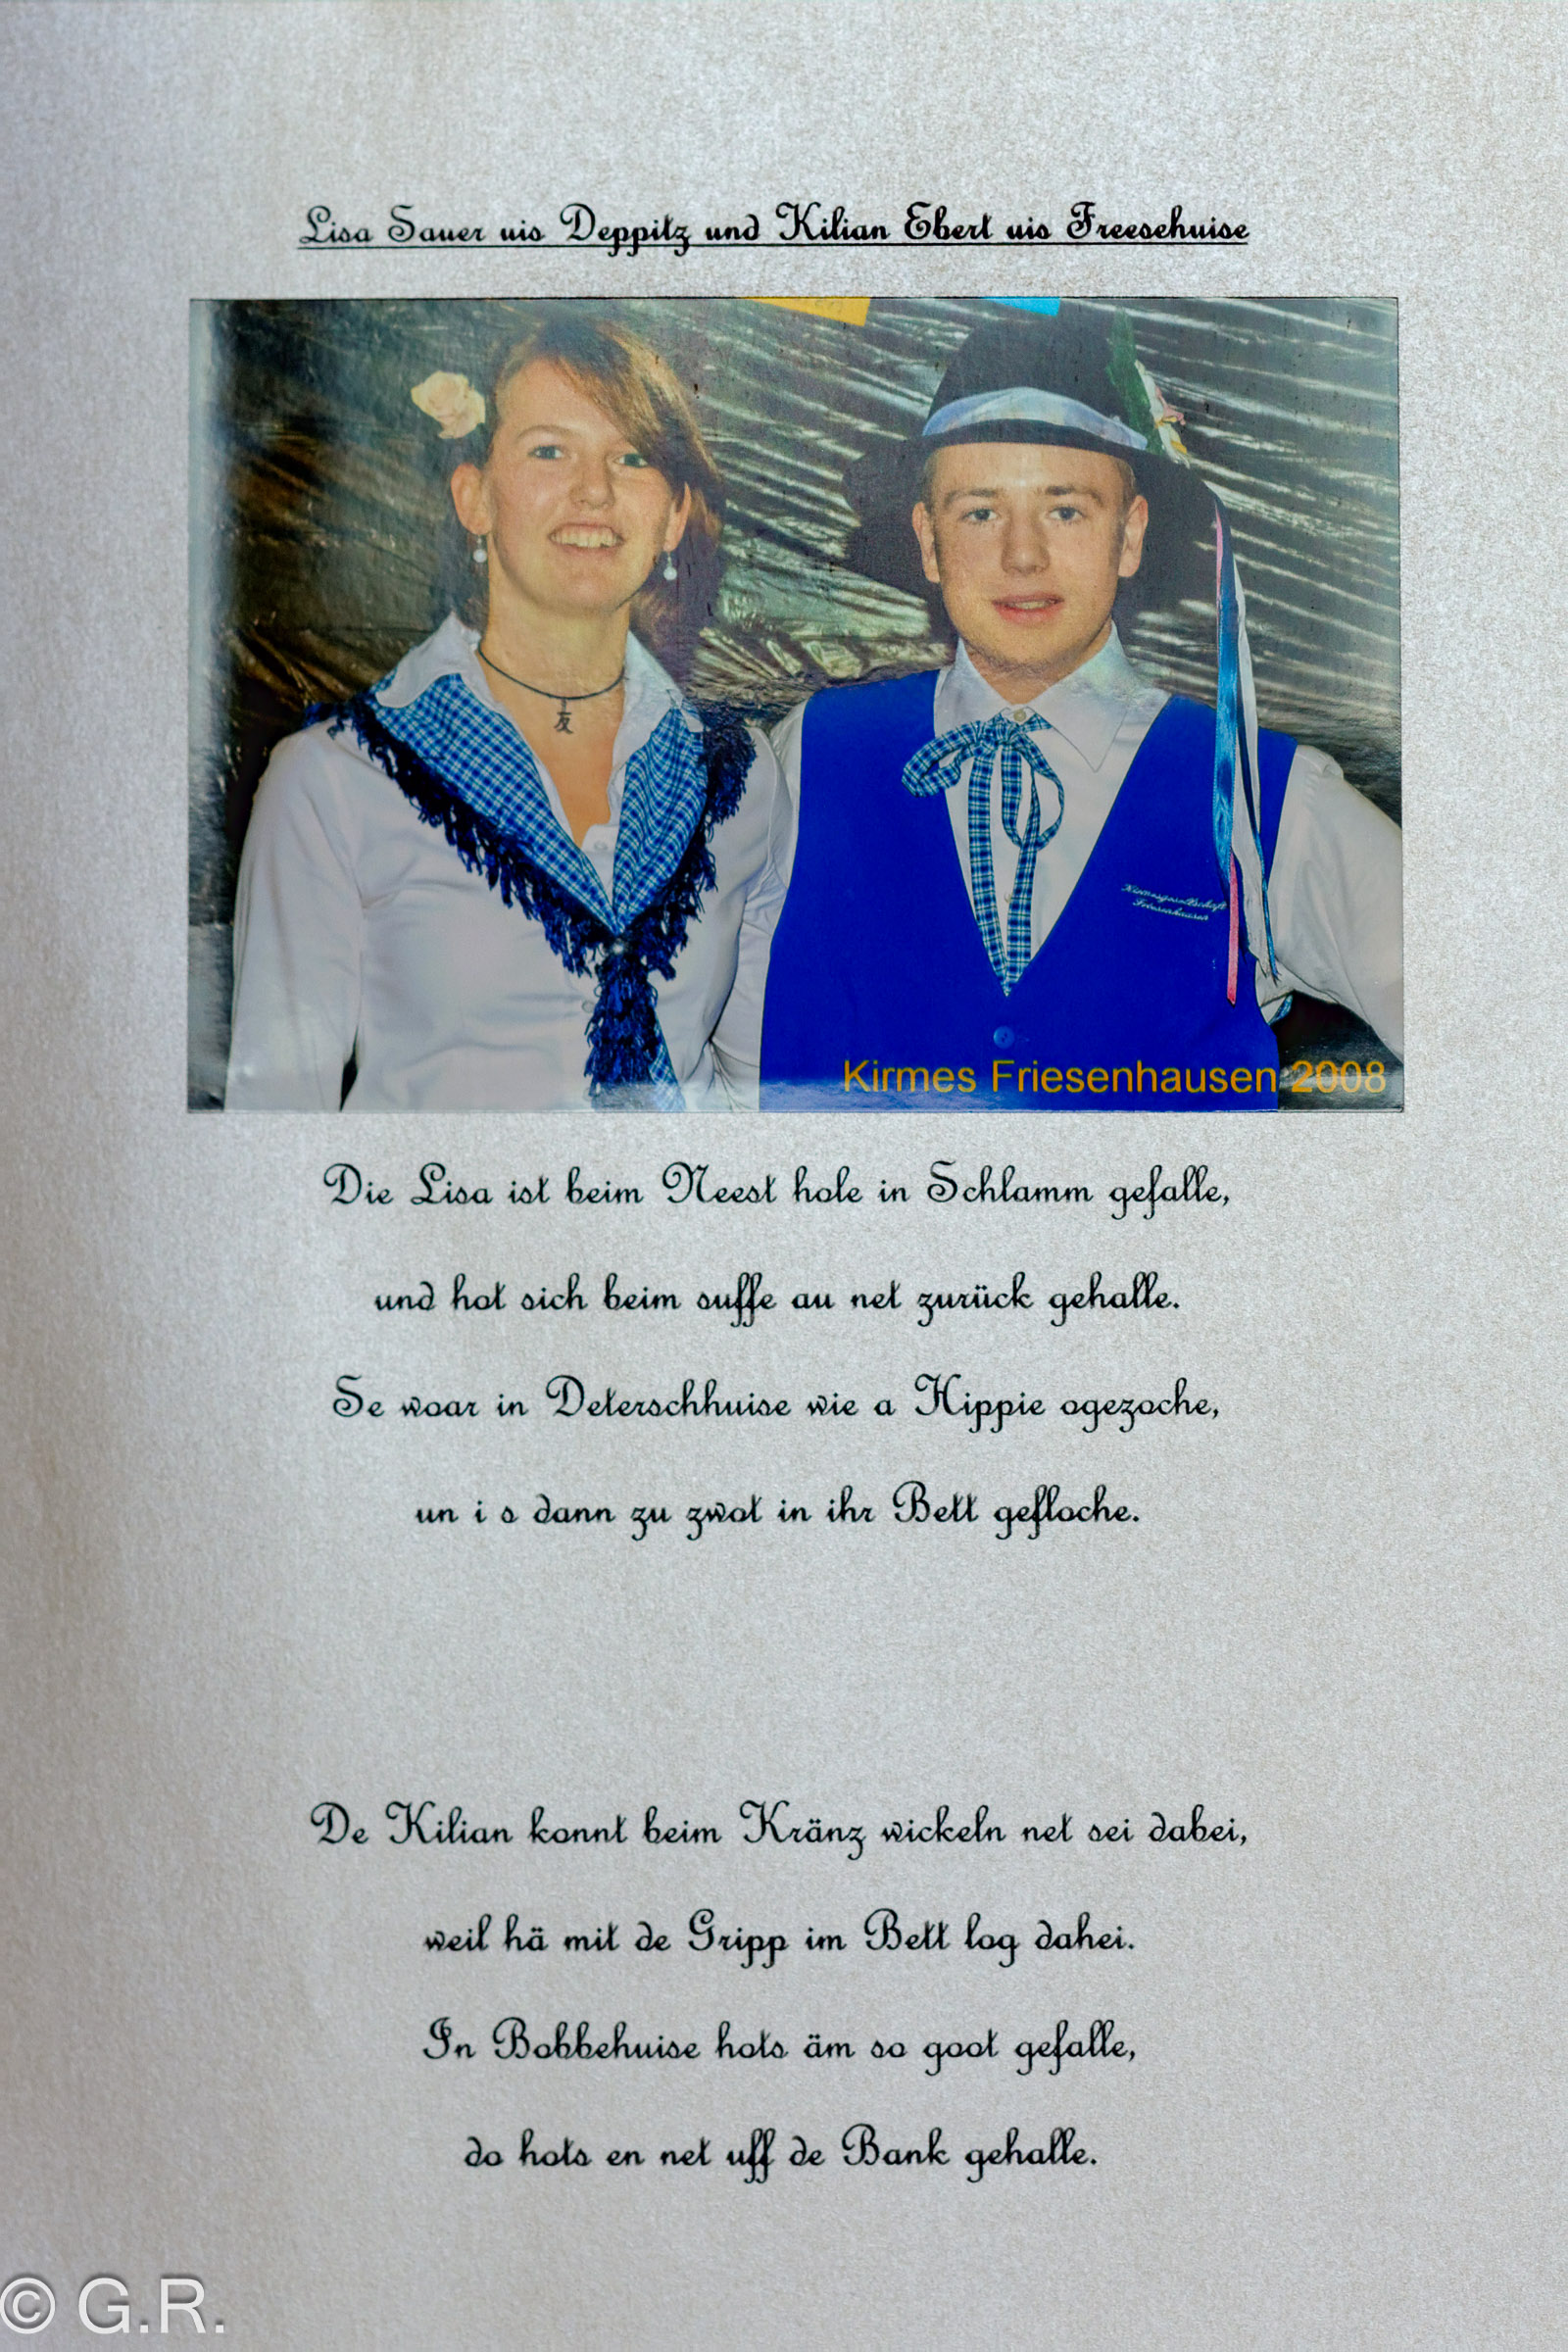 Lisa Sauer uis Deppitz und Kilian Ebert uis Freesehuise
友
Kirmesgesellschaft
Friesenhausen
Kirmes Friesenhausen 2008
Die Lisa ist beim Neest hole in Schlamm gefalle,
und hot sich beim suffe au net zurück gehalle.
Se woar in Deterschhuise wie a Hippie ogezoche,
un i s dann zu zwot in ihr Bett gefloche.
De Kilian konnt beim Kränz wickeln net sei dabei,
weil hä mit de Gripp im Bett log dahei.
In Bobbehuise hots äm so goot gefalle,
do hots en net uff de Bank gehalle.
© G.R.